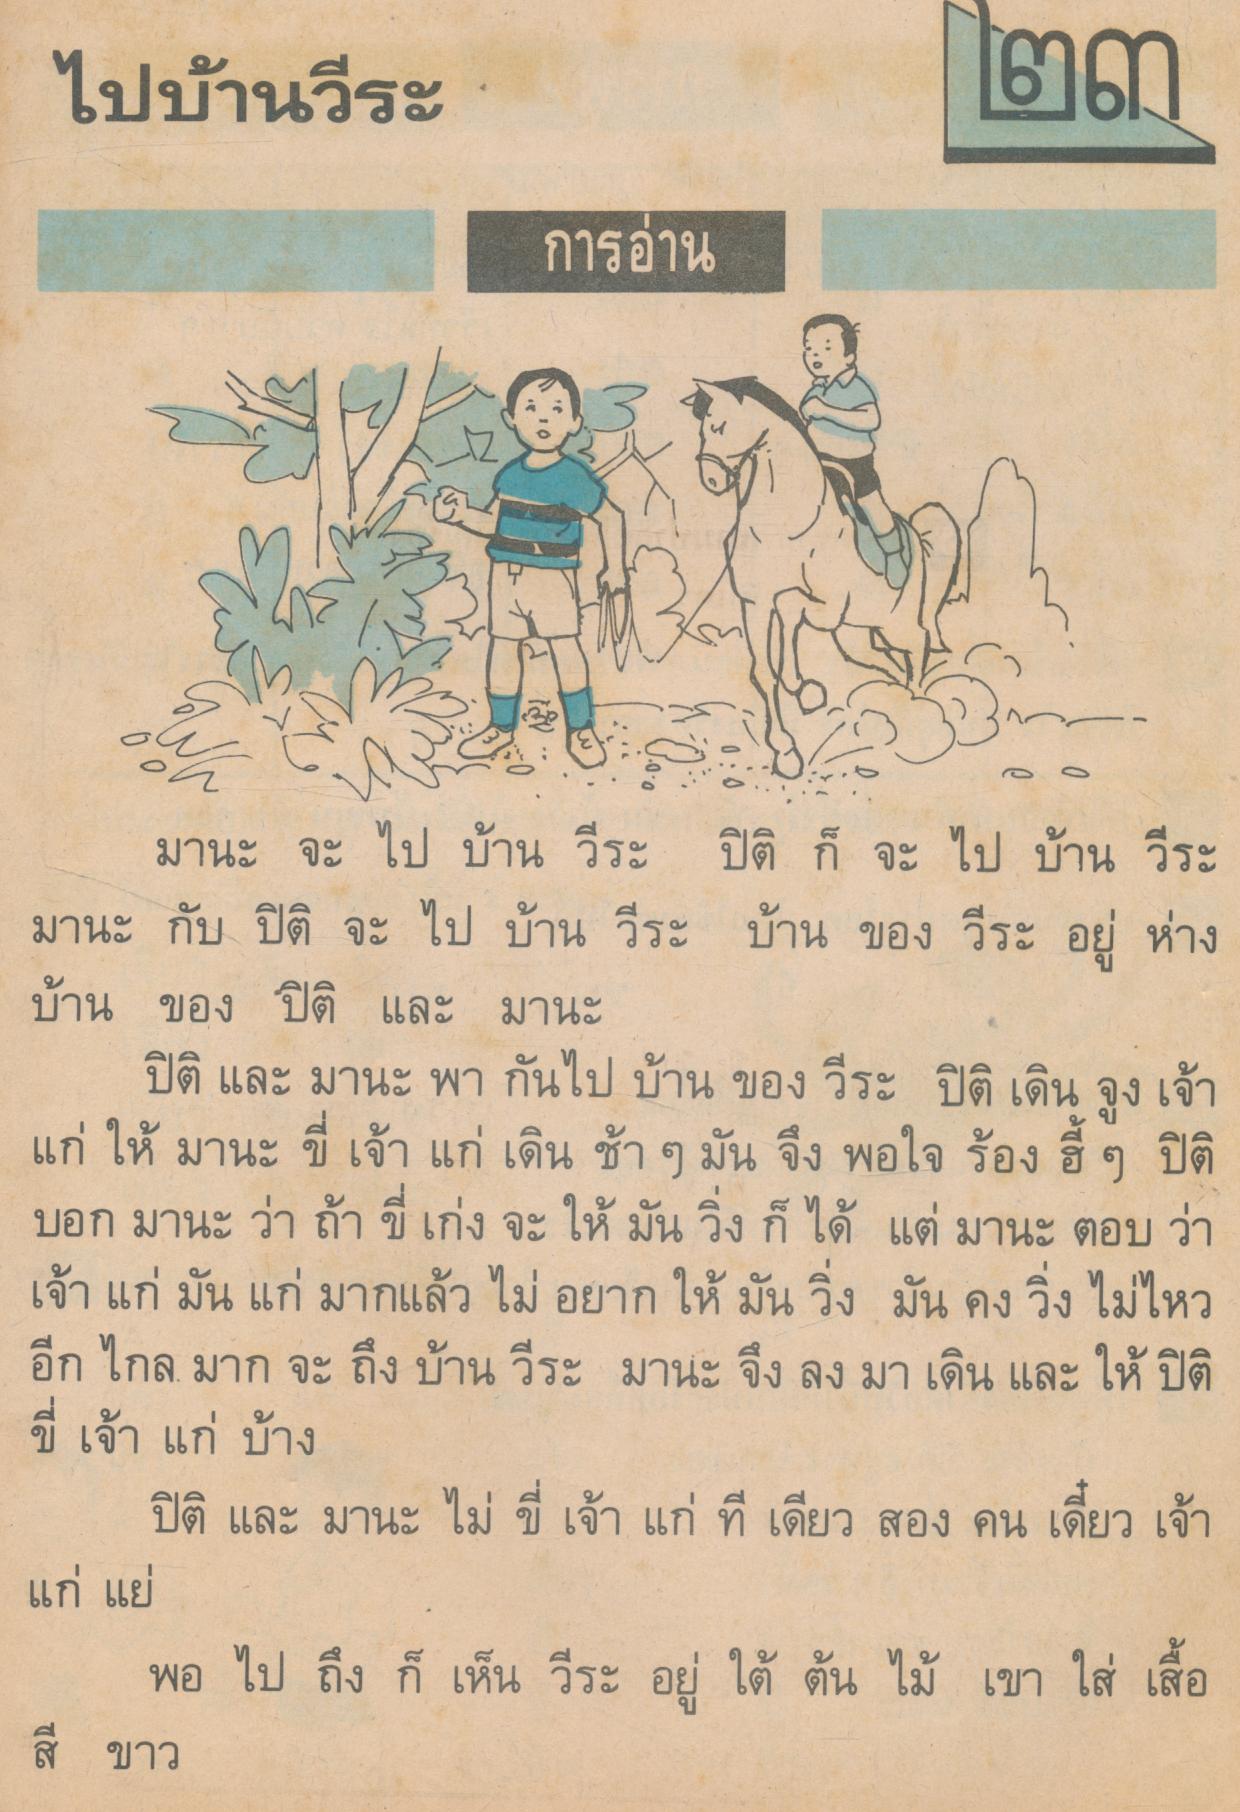 ไปบ้านวีระ
๒๓
การอ่าน
มานะ จะ ไป บ้าน วีระ ปิติ ก็ จะ ไป บ้าน วีระ
มานะ กับ ปิติ จะ ไป บ้าน วีระ บ้าน ของ วีระ อยู่ ห่าง
บ้าน ของ ปิติ และ มานะ
ปิติ และ มานะ พา กันไป บ้าน ของ วีระ ปิติ เดิน จูง เจ้า
แก่ ให้ มานะ ขี่ เจ้า แก่ เดิน ช้า ๆ มัน จึง พอใจ ร้อง ฮี้ ๆ ปิติ
บอก มานะ ว่า ถ้า ขี่ เก่ง จะ ให้ มัน วิ่ง ก็ ได้ แต่ มานะ ตอบ ว่า
เจ้า แก่ มัน แก่ มากแล้ว ไม่ อยาก ให้ มัน วิ่ง มัน คง วิ่ง ไม่ไหว
อีก ไกล มาก จะ ถึง บ้าน วีระ มานะ จึง ลง มา เดิน และ ให้ ปิติ
ขี่ เจ้า แก่ บ้าง
ปิติ และ มานะ ไม่ ขี่ เจ้า แก่ ที เดียว สอง คน เดี๋ยว เจ้า
แก่ แย่
พอ ไป ถึง ก็ เห็น วีระ อยู่ ใต้ ต้น ไม้ เขา ใส่ เสื้อ
สี ขาว